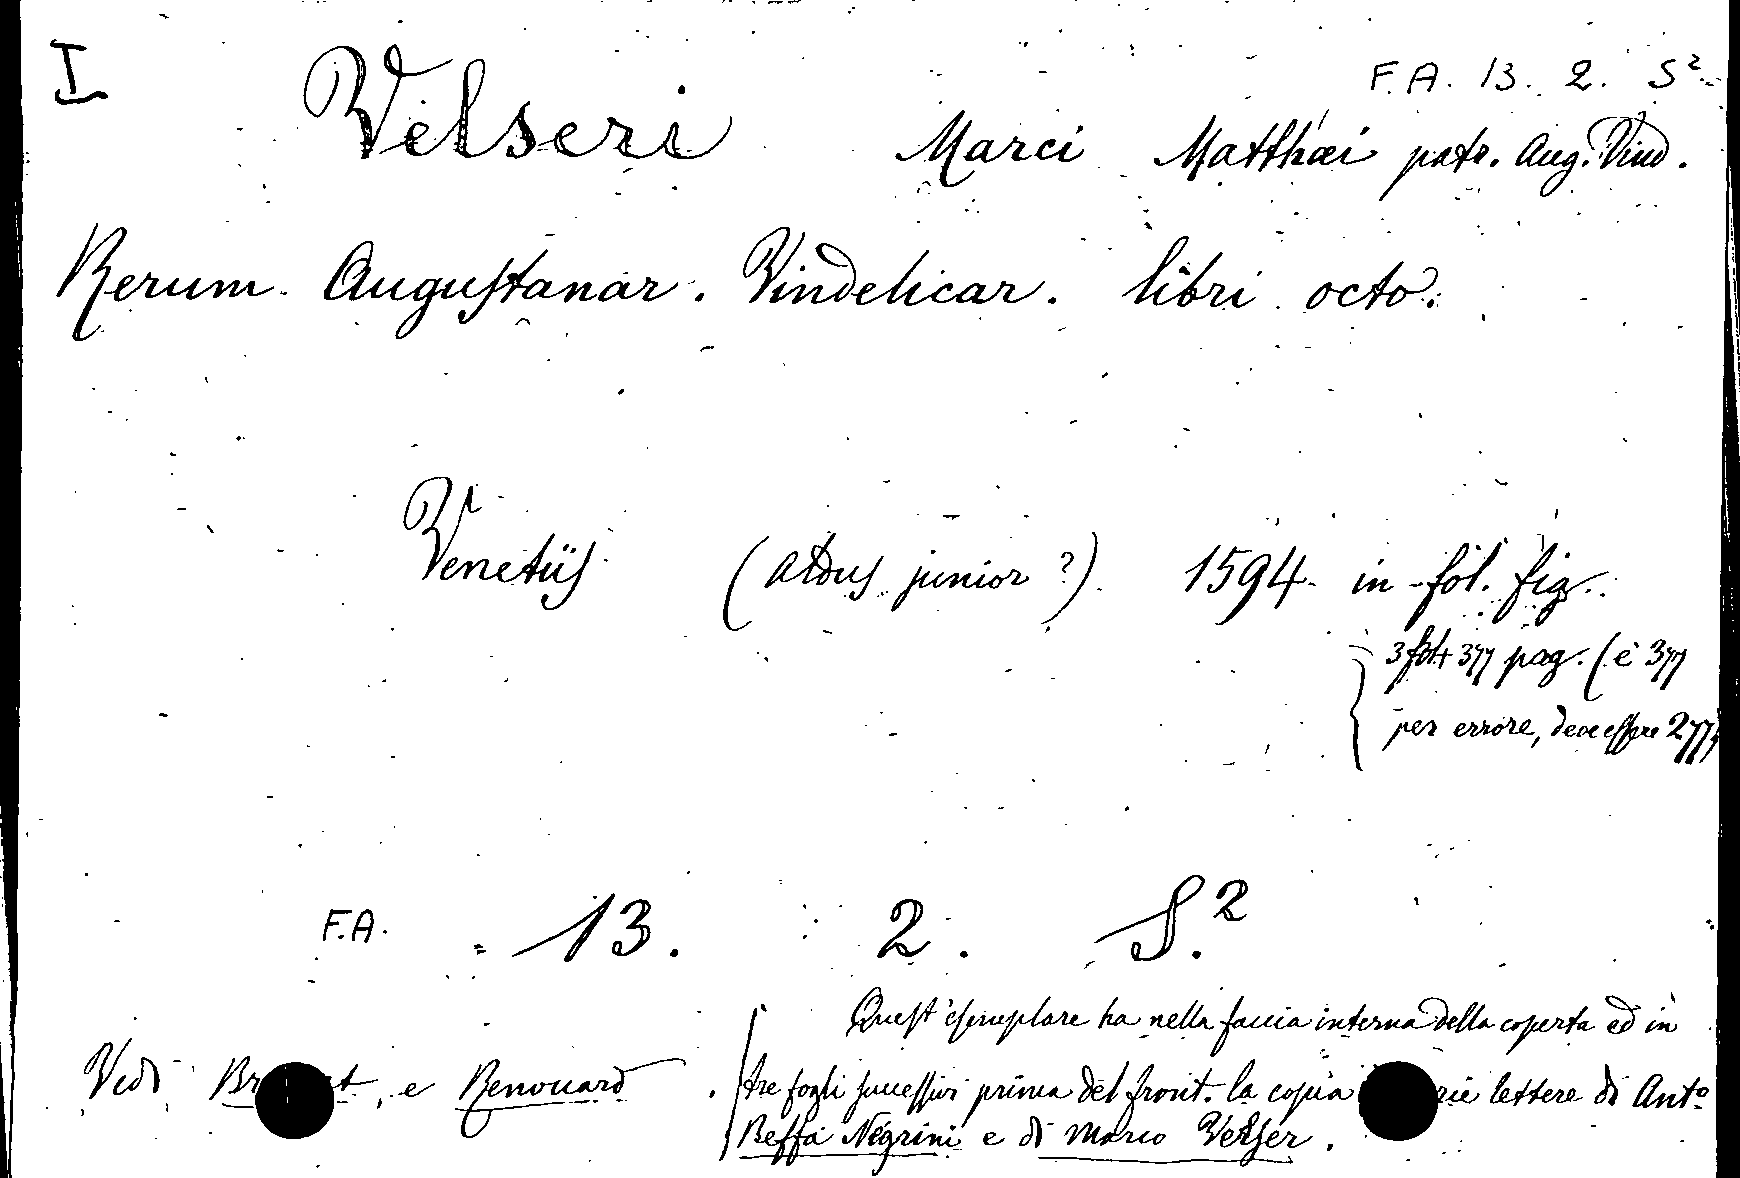 I
F. A. 13. 2. S²
Velseri Marci Matthæi patr. Aug. Vind.
Rerum Augustanar. Vindelicar. libri octo.
Venetiis (Aldus junior?) 1594. in fol. fig.
3 fol + 377 pag. (è 377
per errore, deve essere 277)
F.A. 13. 2. S.²
Quest'esemplare ha nella faccia interna della coperta ed in
Vedi e Renouard. tre fogli successivi prima del front. la copia lettere di Antº
Beffa Negrini e di Marco Velser.